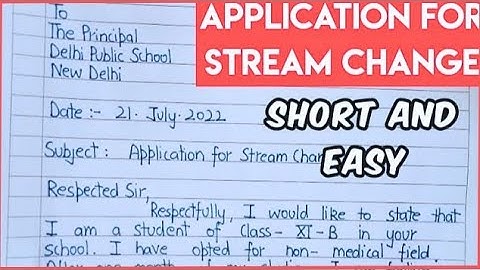 To
The Principal
Delhi Public School
New Delhi
Date :- 21. July. 2022
Subject : Application for Stream Chan
Respected Sir,
Respectfully, I would like to state that
I am a student of Class- XI-B in your
school. I have opted for non- medical field.
After one month of my I
APPLICATION FOR
STREAM CHANGE
SHORT AND
EASY